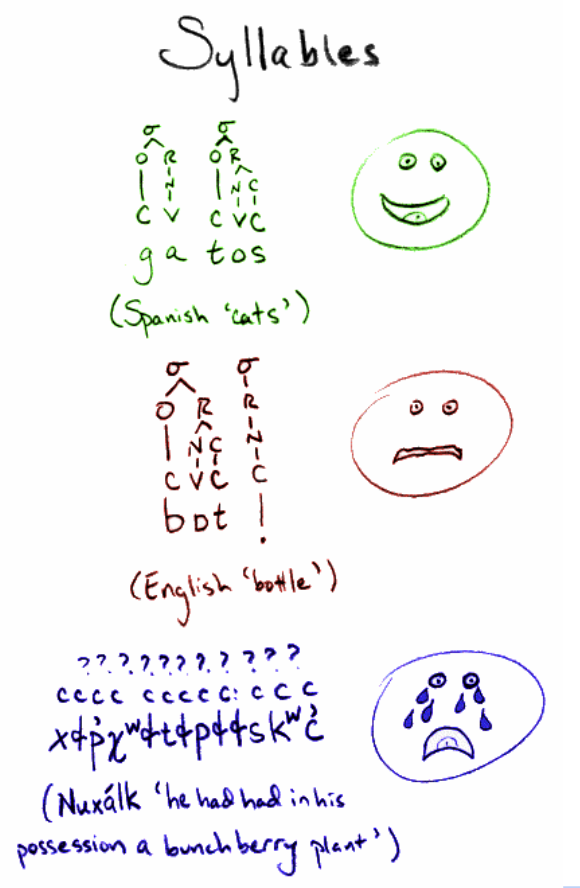 Syllables
σ σ
O R O R
N N C
C V C V C
ga tos
(Spanish ‘cats’)
σ σ
O R R
N C N
C V C C
bɒt l̩
(English ‘bottle’)
? ? ? ? ? ? ? ? ? ? ?
c c c c c c c c c: c c c
xɬp̓χʷɬtɬpɬɬskʷc̓
(Nuxálk ‘he had had in his
possession a bunchberry plant’)